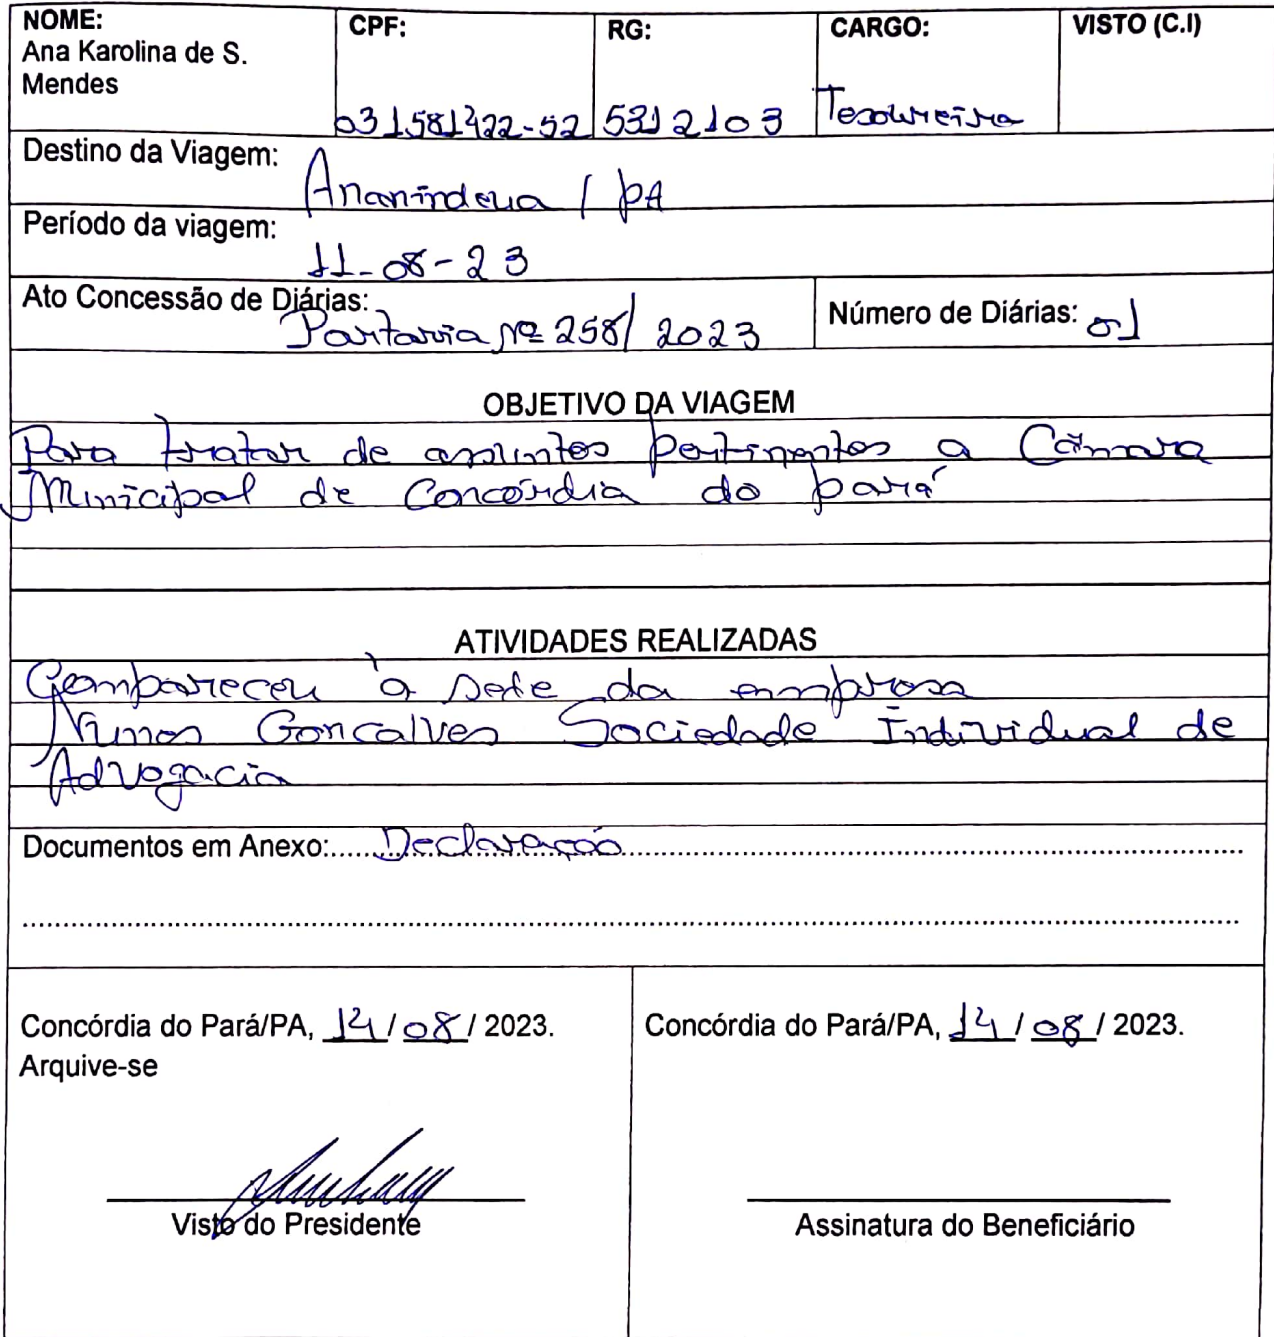 NOME: CPF: RG: CARGO: VISTO (C.I)
Ana Karolina de S.
Mendes
031581422-52 5312103 Tesoureira
Destino da Viagem: Ananindeua / PA
Período da viagem: 11-08-23
Ato Concessão de Diárias: Portaria nº 258/2023 Número de Diárias: 01
OBJETIVO DA VIAGEM
Para tratar de assuntos pertinentes a Câmara
Municipal de Concórdia do pará
ATIVIDADES REALIZADAS
Compareceu à sede da empresa
Nunes Goncalves Sociedade Individual de
Advogacia
Documentos em Anexo:.....Declaração.....
Concórdia do Pará/PA, 14/08/2023. Concórdia do Pará/PA, 14/08/2023.
Arquive-se
Visto do Presidente Assinatura do Beneficiário